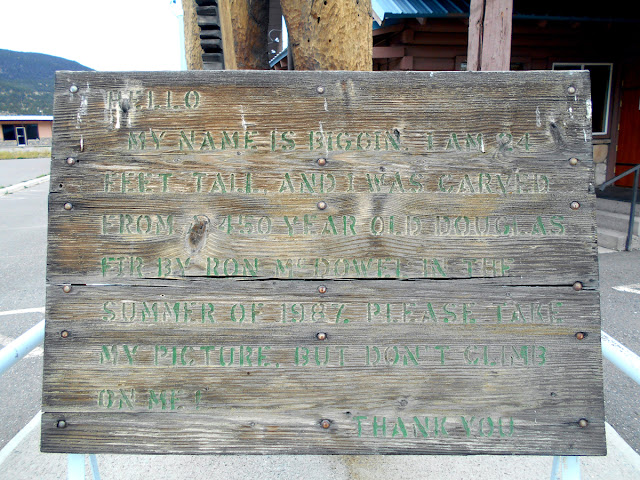 HELLO
MY NAME IS BIGGIN. I AM 24
FEET TALL, AND I WAS CARVED
FROM A 450 YEAR OLD DOUGLAS
FIR BY RON McDOWEL IN THE
SUMMER OF 1987. PLEASE TAKE
MY PICTURE, BUT DON'T CLIMB
ON ME!
THANK YOU